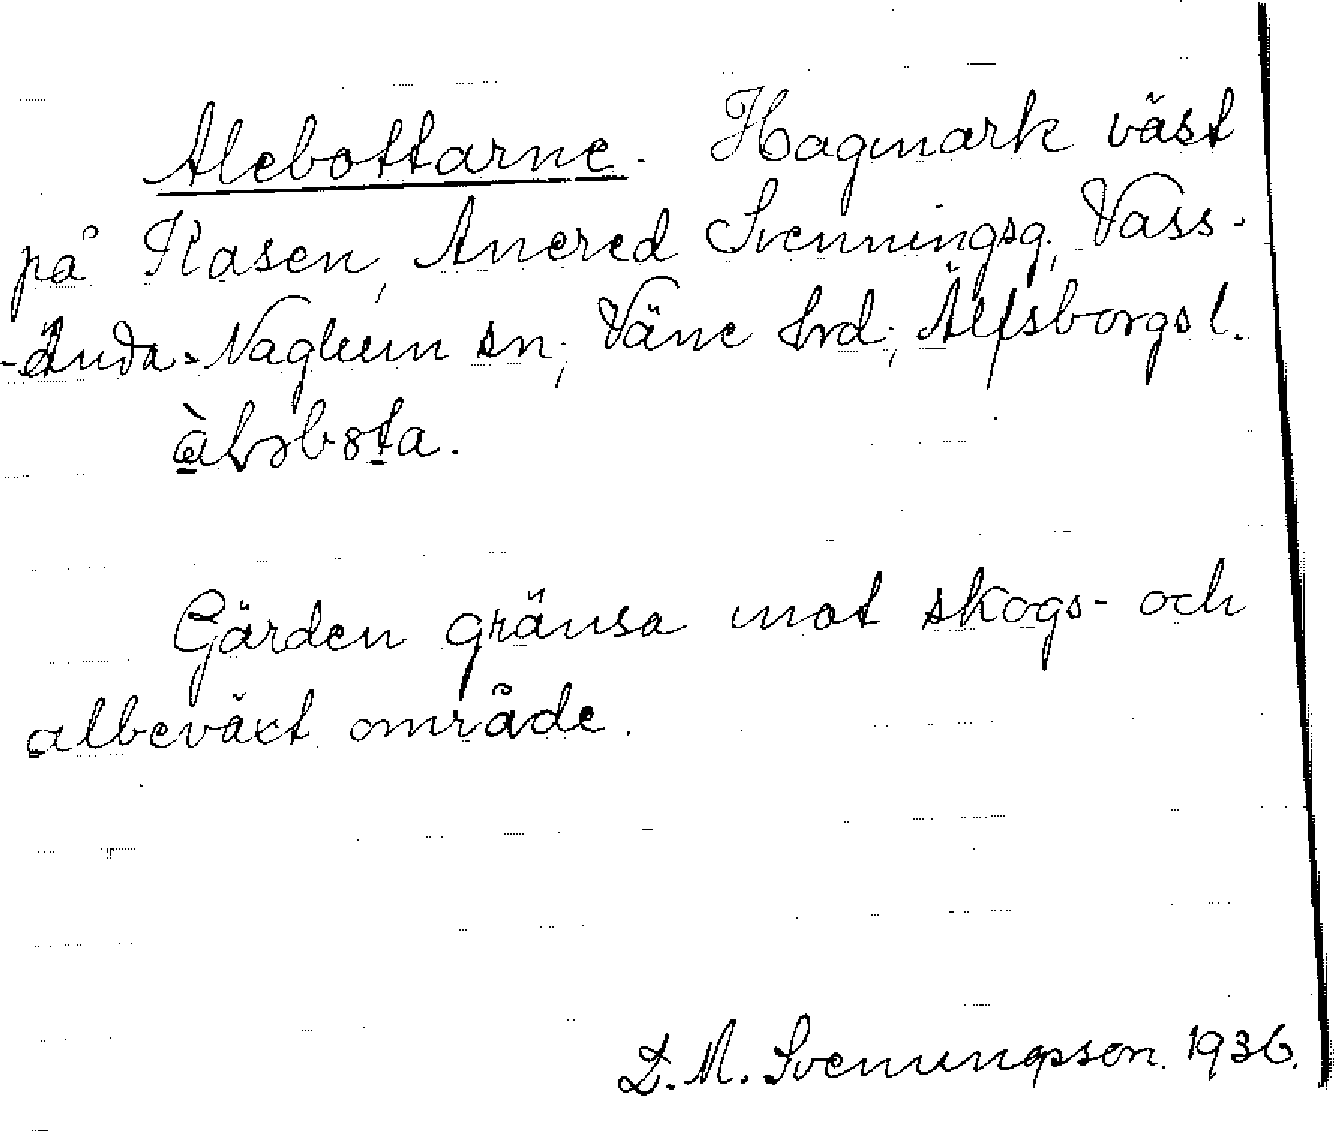 Alebottarne. Hagmark väst
på Rasen, Anered Svenningsg, Vass-
-ända-Naglum sn; Väne hrd; Älfsborgs l.
Gärden gränsa mot skogs- och
albeväxt område.
D. M. Svenungsson. 1936.